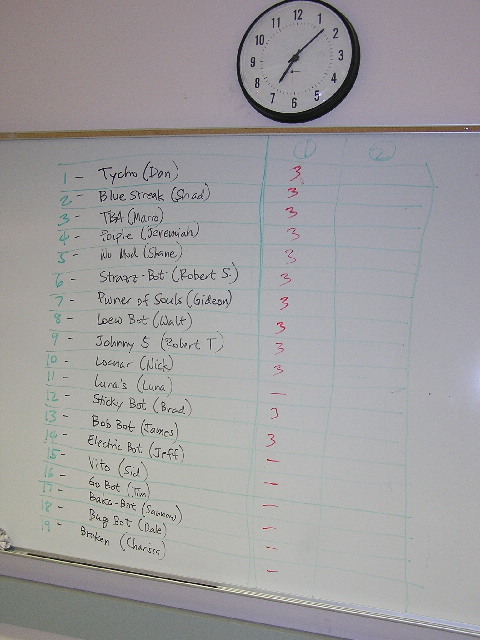 12
1
2
3
4
5
6
7
8
9
10
11
1 2
1 - Tycho (Don) 3
2 - Blue Streak (Shad) 3
3 - TBA (Mario) 3
4 - (Jeremiah) 3
5 - No Mad (Shane) 3
6 - Strazz-Bot (Robert S.) 3
7 - Pwner of Souls (Gideon) 3
8 - Loew Bot (Walt) 3
9 - Johnny 5 (Robert T) 3
10 - Locnar (Nick) 3
11 - Luna's (Luna) -
12 - Sticky Bot (Brad) 3
13 - Bob Bot (James) 3
14 - Electric Bot (Jeff) -
15 - Vito (Sid) -
16 - Go Bot (Tim) -
17 - -
18 - Bug Bot (Dale) -
19 - Broken (Charissa) -